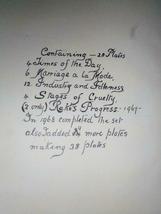 Containing — 28 Plates
4 Times of the Day.
6 Marriage a la Mode.
12 Industry and Idleness
4 Stages of Cruelty.
(2 only) Rakes Progress - 1967 -
In 1968 completed the set
also added more plates
making 38 plates